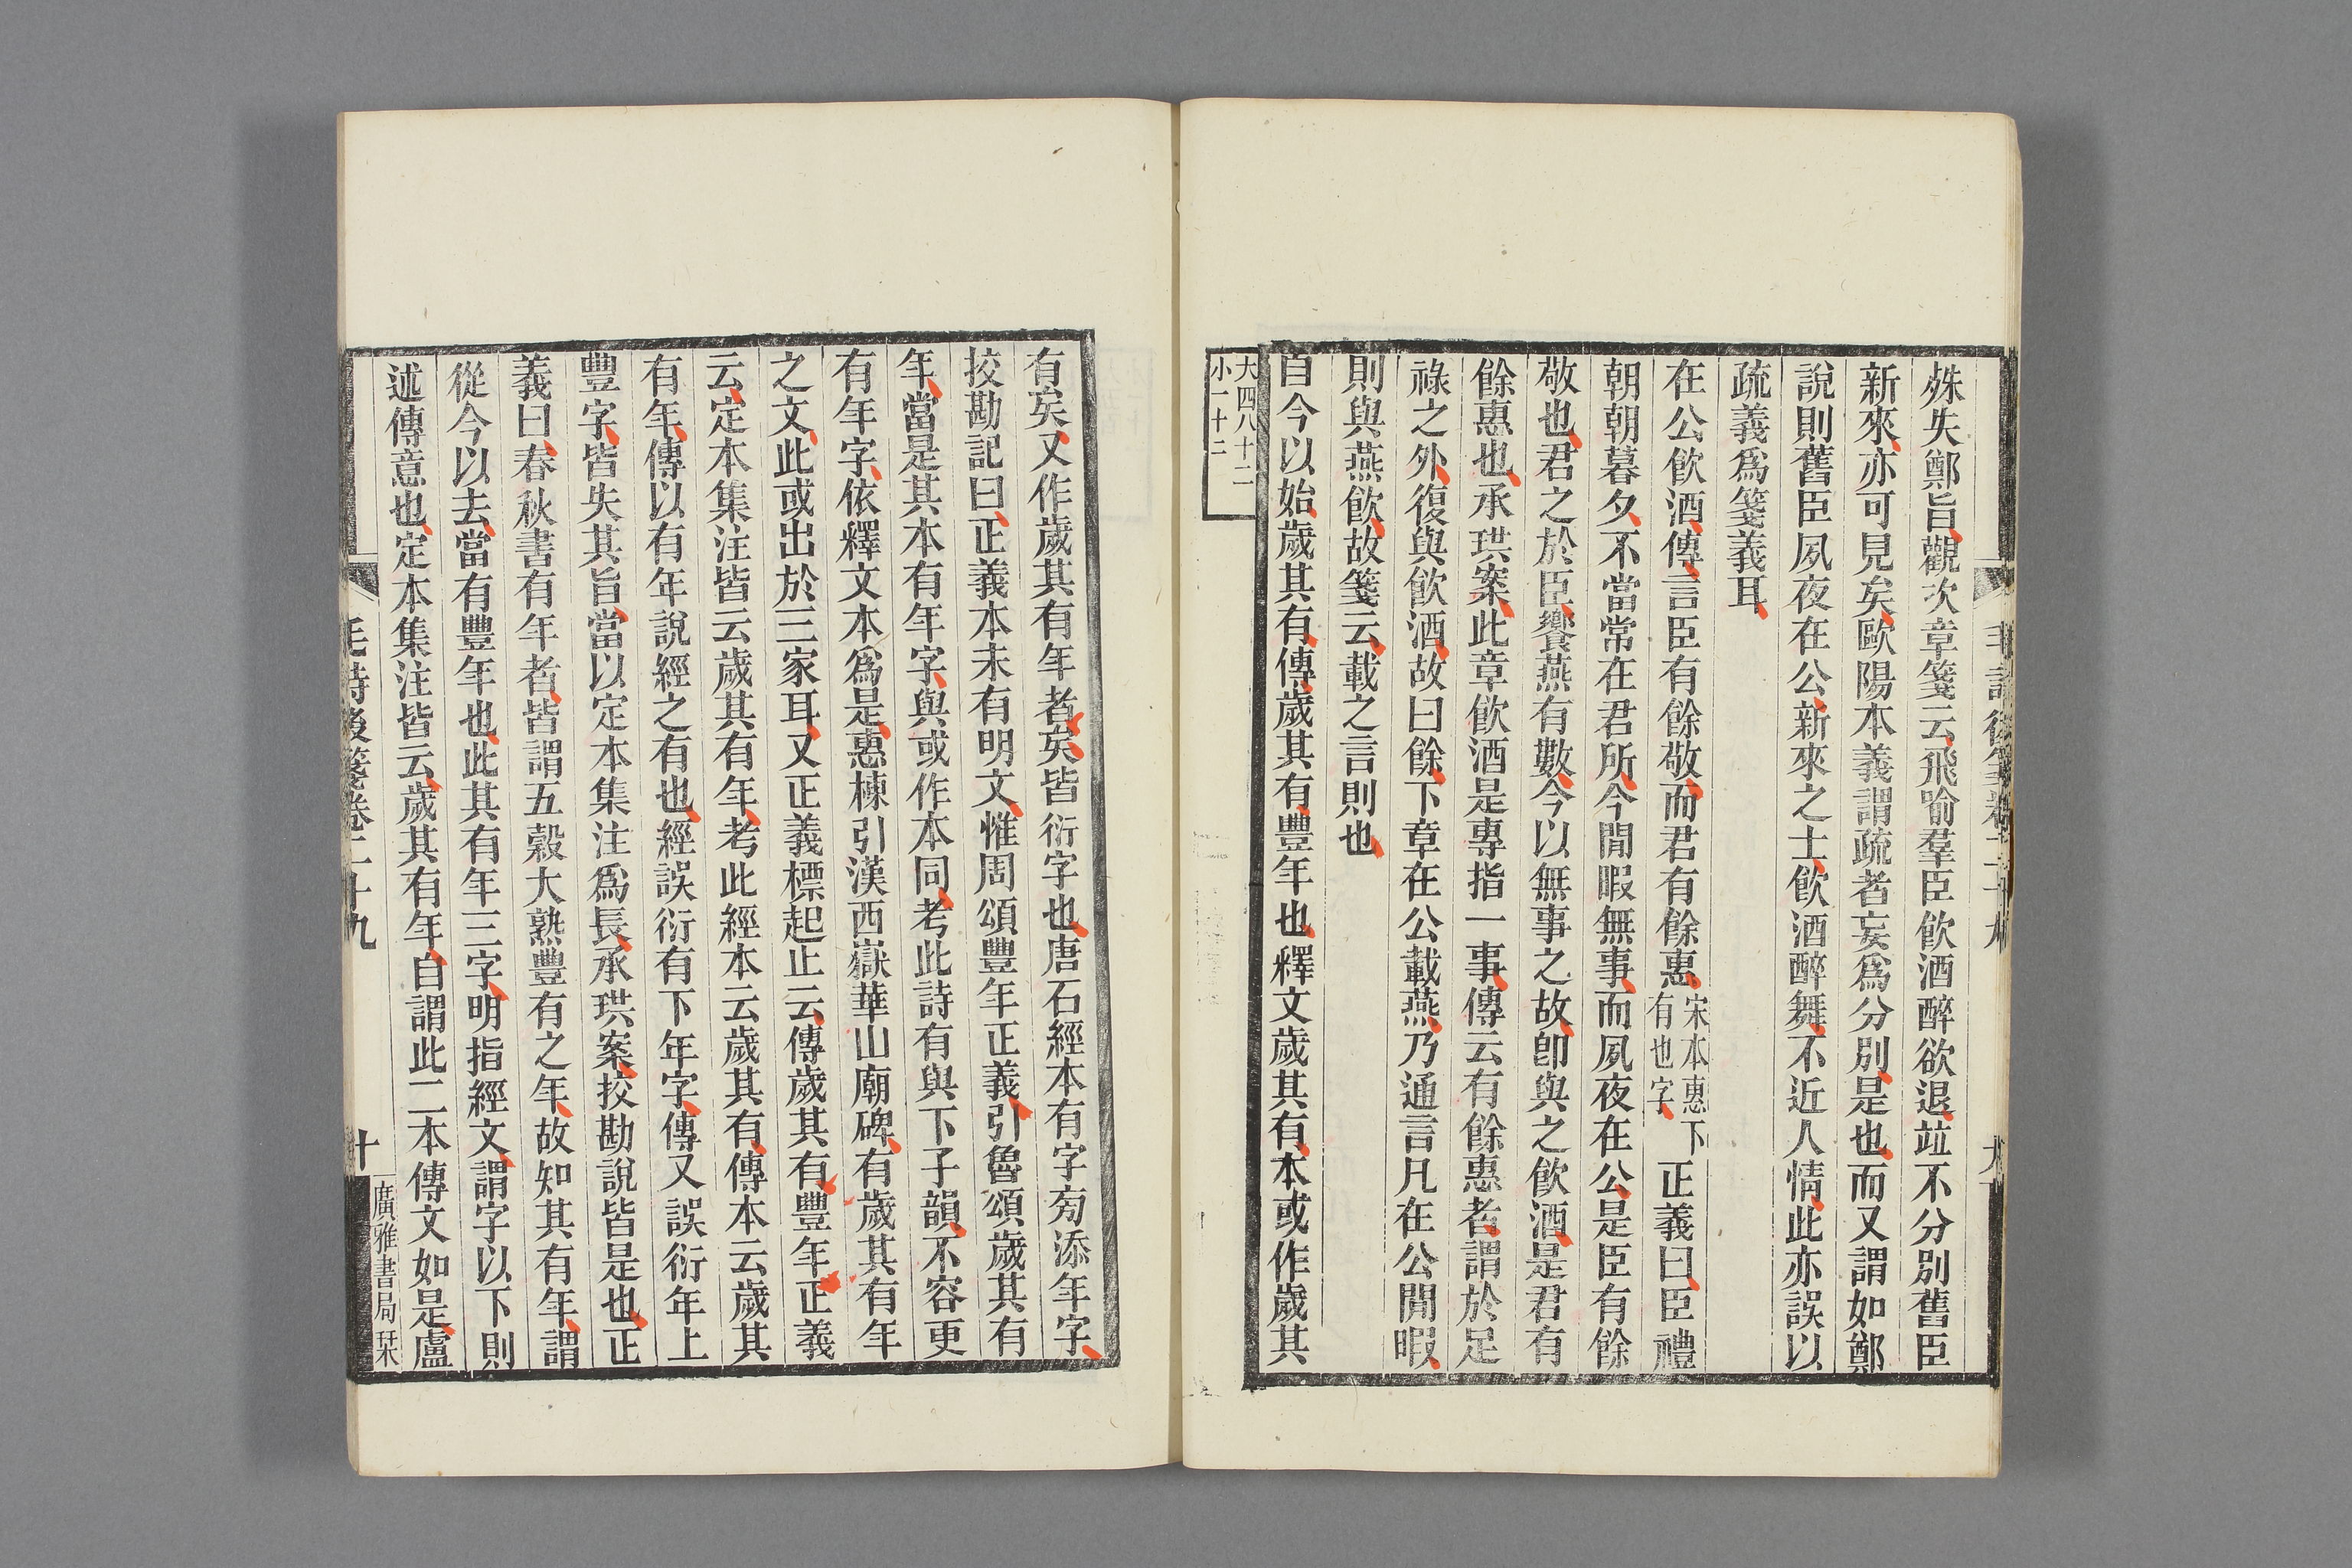 毛詩後箋卷二十九
九
殊失鄭旨觀次章箋云飛喻羣臣飲酒醉欲退竝不分別舊臣
新來亦可見矣歐陽本義謂疏者妄爲分別是也而又謂如鄭
說則舊臣夙夜在公新來之士飲酒醉舞不近人情此亦誤以
疏義爲箋義耳
在公飲酒傳言臣有餘敬而君有餘惠宋本惠下有也字正義曰臣禮
朝朝暮夕不當常在君所今閒暇無事而夙夜在公是臣有餘
敬也君之於臣饗燕有數今以無事之故卽與之飲酒是君有
餘惠也承珙案此章飲酒是專指一事傳云有餘惠者謂於足
祿之外復與飲酒故曰餘下章在公載燕乃通言凡在公閒暇
則與燕飲故箋云載之言則也
自今以始歲其有傳歲其有豐年也釋文歲其有本或作歲其
大四八十二
小一十二
有矣又作歲其有年者矣皆衍字也唐石經本有字旁添年字
挍勘記曰正義本未有明文惟周頌豐年正義引魯頌歲其有
年當是其本有年字與或作本同考此詩有與下子韻不容更
有年字依釋文本爲是惠棟引漢西嶽華山廟碑有歲其有年
之文此或出於三家耳又正義標起止云傳歲其有豐年正義
云定本集注皆云歲其有年考此經本云歲其有傳本云歲其
有年傳以有年說經之有也經誤衍有下年字傳又誤衍年上
豐字皆失其旨當以定本集注爲長承珙案挍勘說皆是也正
義曰春秋書有年者皆謂五穀大熟豐有之年故知其有年謂
從今以去當有豐年也此其有年三字明指經文謂字以下則
述傳意也定本集注皆云歲其有年自謂此二本傳文如是盧
毛詩後箋卷二十九
十
廣雅書局栞